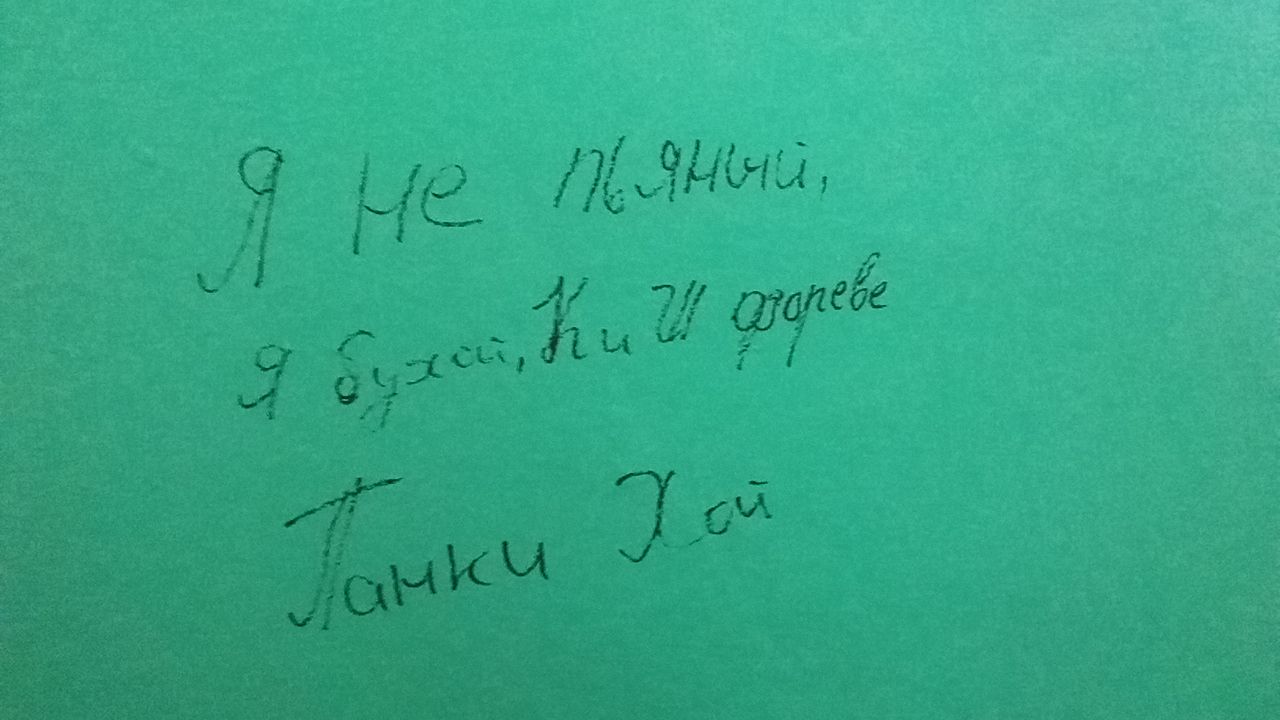 Я не пьяный,
Я бухой, КиШ фореве
Панки Хой